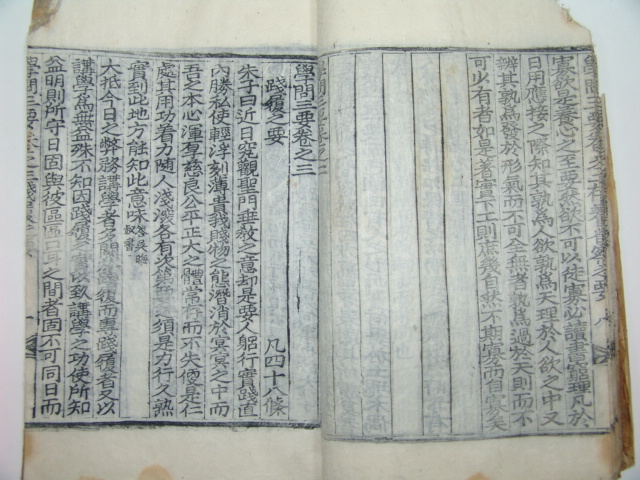 寡欲是養心之至要然欲不可以徒寡必讀書窮理凡於
日用應接之際知其孰爲人欲孰爲天理於人欲之中又
辨其孰爲發於形氣而不可全無者孰爲過於天則而不
可少有者如是著實下工則庶幾自然不期寡而自寡矣
學問三要卷之三
踐履之要
凡四十八條
朱子曰近日究觀聖門垂敎之意却是要人躬行實踐直
內勝私使輕浮刻薄貴我賤物之態潛消於冥冥之中而
吾之本心渾有慈良公平正大之體常存而不失便是仁
處其用功着力隨人淺深各有次第 須是力行久熟
實到此地方能知此意味答吳晦叔書
大抵今日之弊務講學者多闕 踐履而專踐履者又以
講學爲無益殊不知因踐履之實以致講學之功使所知
益明則所守日固與彼區區口耳之間者固不可同日而